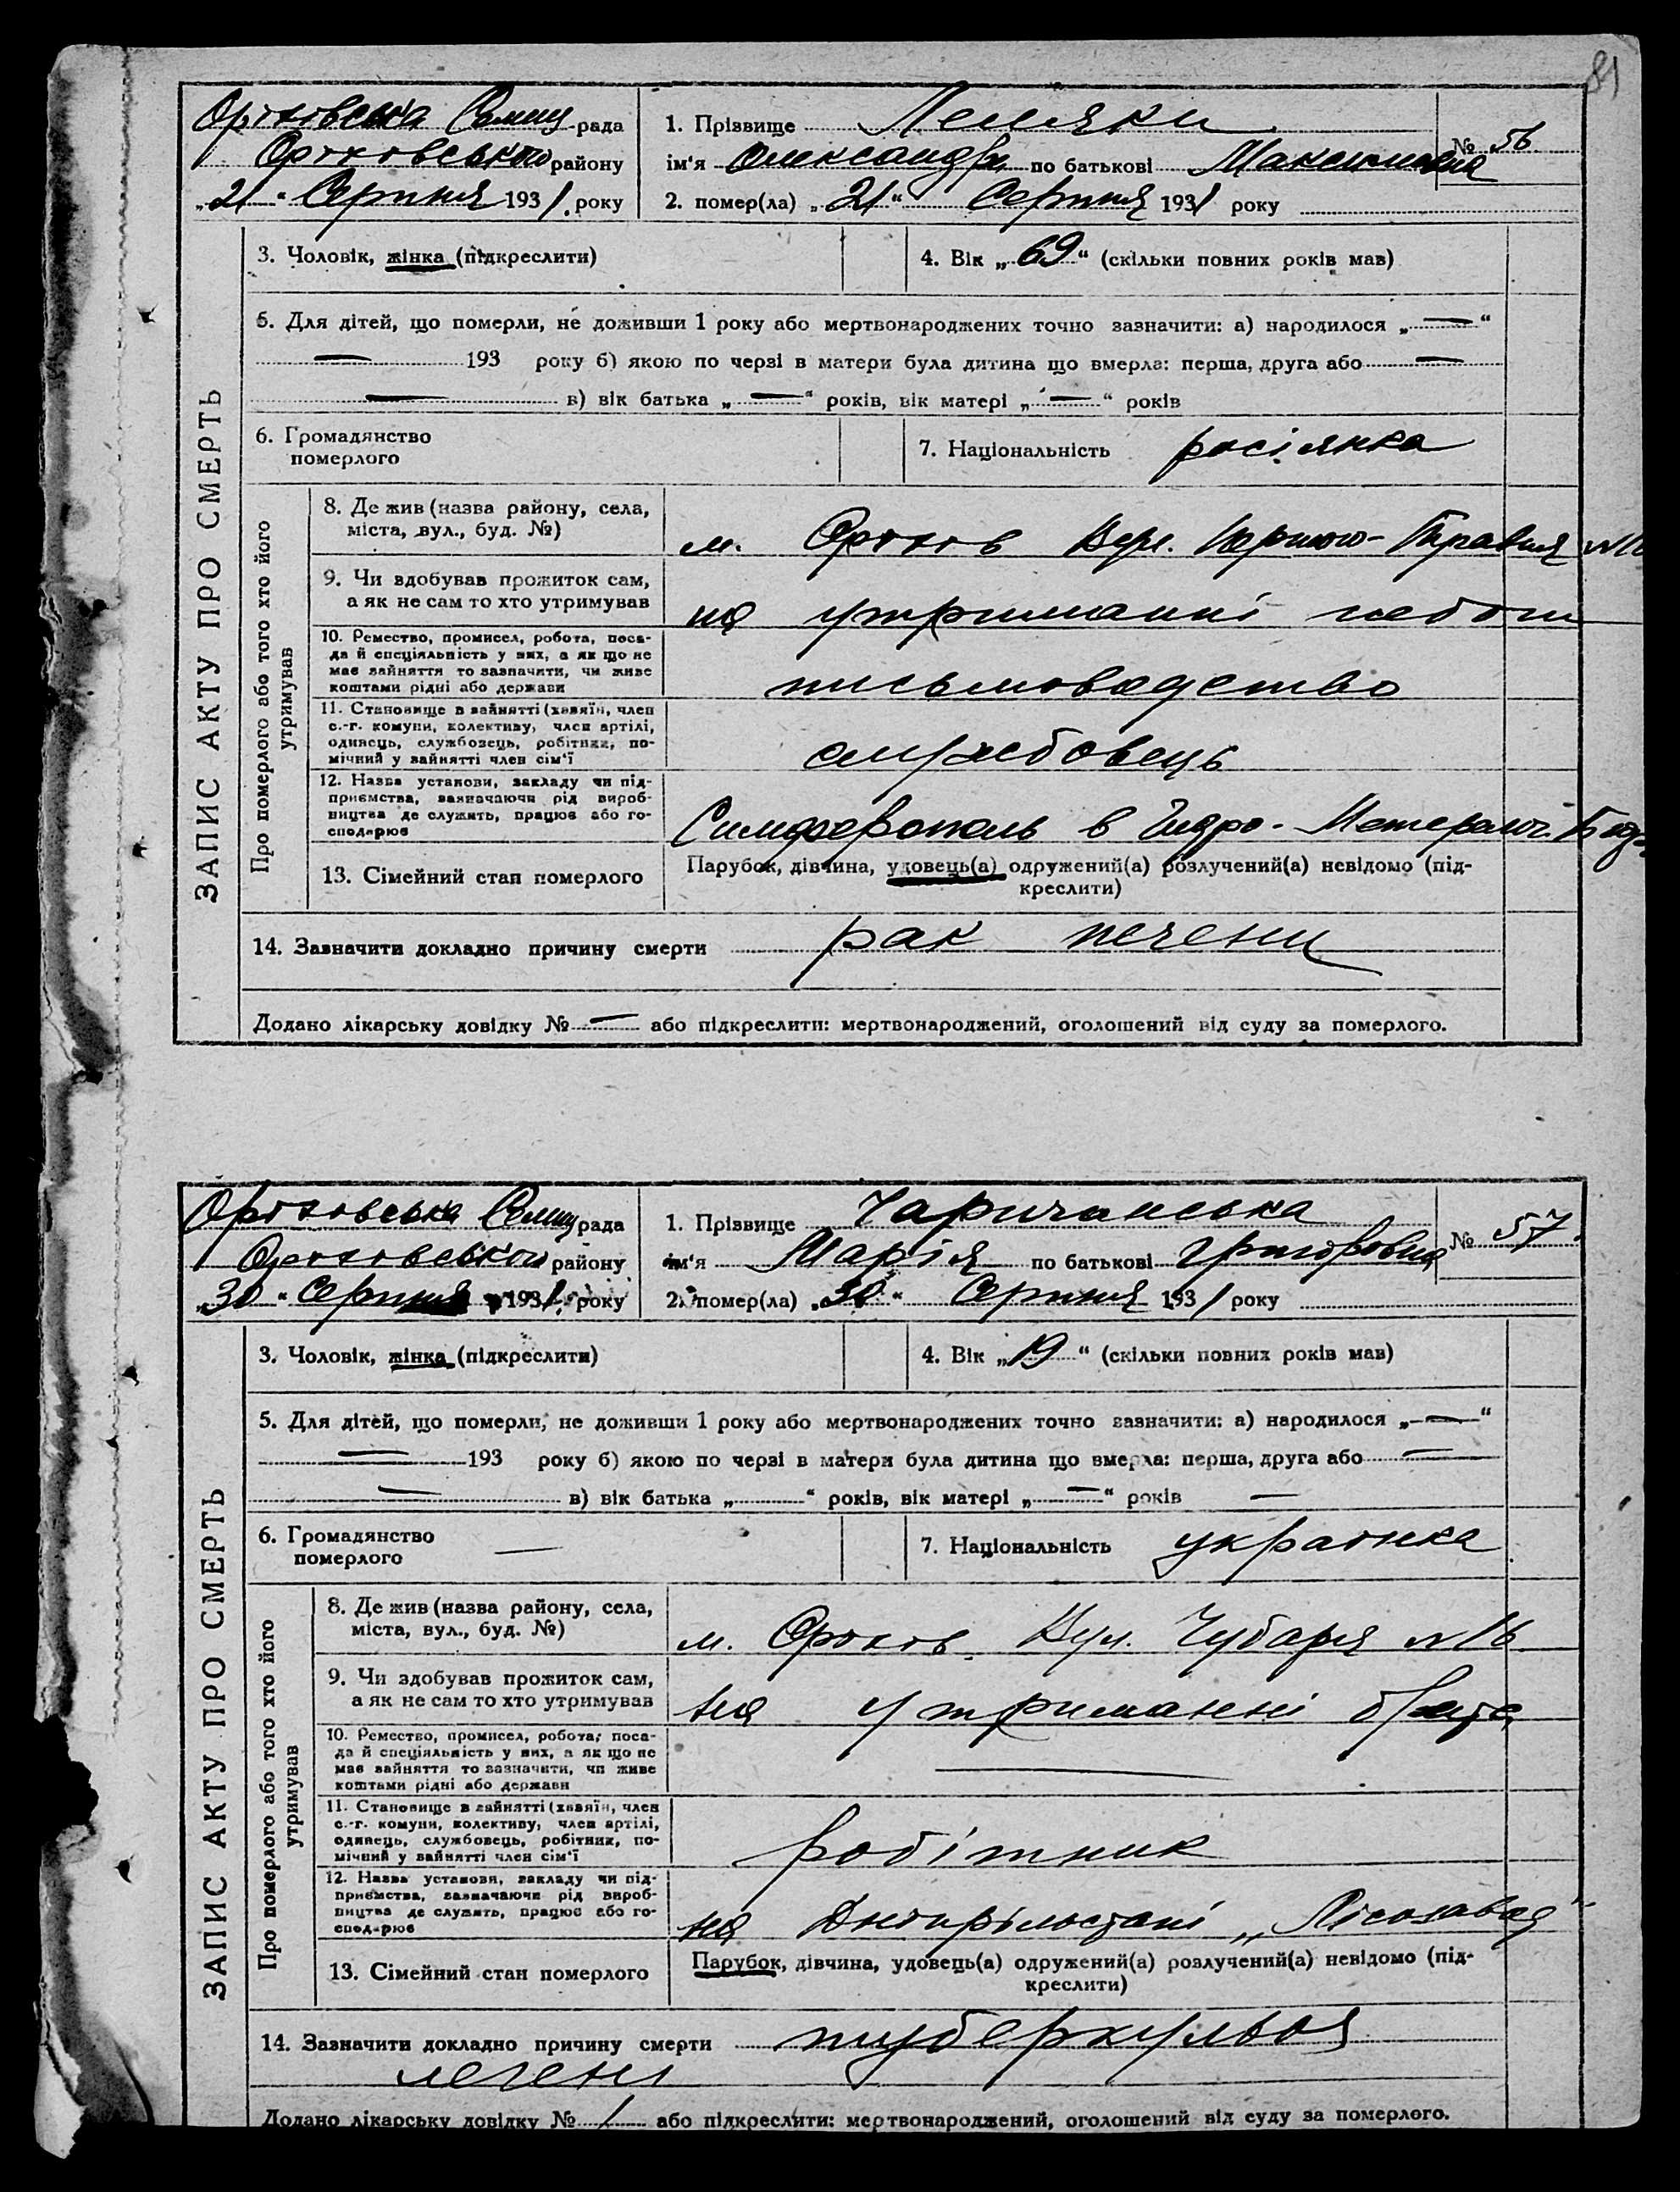 81
Оріховська Селищ рада
Оріховського району
„21“ Серпня 1931 року
1. Прізвище
№ 56
ім‘я Олександра по батькові Максимовна
2. помер(ла) „21“ Серпня 1931 року
ЗАПИС АКТУ ПРО СМЕРТЬ
3. Чоловік, жінка (підкреслити)
4. Вік „69“ (скільки повних років мав)
5. Для дітей, що померли, не доживши 1 року або мертвонароджених точно зазначити: а) народилося „—“
— 193 року б) якою по черзі в матери була дитина що вмерла: перша, друга або —
— в) вік батька „—“ років, вік матері „—“ років
6. Громадянство
померлого
7. Національність росіянка
Про померлого або того хто його
утримував
8. Де жив (назва району, села,
міста, вул., буд. №)
м. Оріхов Вул. Першого-Травня №
9. Чи здобував прожиток сам,
а як не сам то хто утримував
на утриманні
10. Ремество, промисел, робота, поса-
да й спеціяльність у них, а як що не
має зайняття то зазначити, чи живе
коштами рідні або держави
письмоводство
11. Становище в зайнятті (хазяїн, член
с.-г. комуни, колективу, член артілі,
одинець, службовець, робітник, по-
мічний у зайнятті член сім‘ї
службовець
12. Назва установи, закладу чи під-
приємства, зазначаючи рід вироб-
ництва де служить, працює або го-
сподарює
Симферополь в Гидро-
13. Сімейний стан померлого
Парубок, дівчина, удовець(а) одружений(а) розлучений(а) невідомо (під-
креслити)
14. Зазначити докладно причину смерти рак печени
Додано лікарську довідку № — або підкреслити: мертвонароджений, оголошений від суду за померлого.
Оріховська Селищ рада
Оріховського району
„30“ Серпня 1931 року
1. Прізвище Чаричанська
№ 57
ім‘я Марія по батькові Григоровна
2. помер(ла) „30“ Серпня 1931 року
ЗАПИС АКТУ ПРО СМЕРТЬ
3. Чоловік, жінка (підкреслити)
4. Вік „19“ (скільки повних років мав)
5. Для дітей, що померли, не доживши 1 року або мертвонароджених точно зазначити: а) народилося „—“
— 193 року б) якою по черзі в матери була дитина що вмерла: перша, друга або —
— в) вік батька „“ років, вік матері „—“ років —
6. Громадянство
померлого —
7. Національність українка
Про померлого або того хто його
утримував
8. Де жив (назва району, села,
міста, вул., буд. №)
м. Оріхов Вул. Чубаря № 16
9. Чи здобував прожиток сам,
а як не сам то хто утримував
на утриманні брата
10. Ремество, промисел, робота, поса-
да й спеціяльність у них, а як що не
має зайняття то зазначити, чи живе
коштами рідні або держави
—
11. Становище в зайнятті (хазяїн, член
с.-г. комуни, колективу, член артілі,
одинець, службовець, робітник, по-
мічний у зайнятті член сім‘ї
робітник
12. Назва установи, закладу чи під-
приємства, зазначаючи рід вироб-
ництва де служить, працює або го-
сподарює
на „Лісозавод“
13. Сімейний стан померлого
Парубок, дівчина, удовець(а) одружений(а) розлучений(а) невідомо (під-
креслити)
14. Зазначити докладно причину смерти туберкульоз
легені
Додано лікарську довідку № / або підкреслити: мертвонароджений, оголошений від суду за померлого.